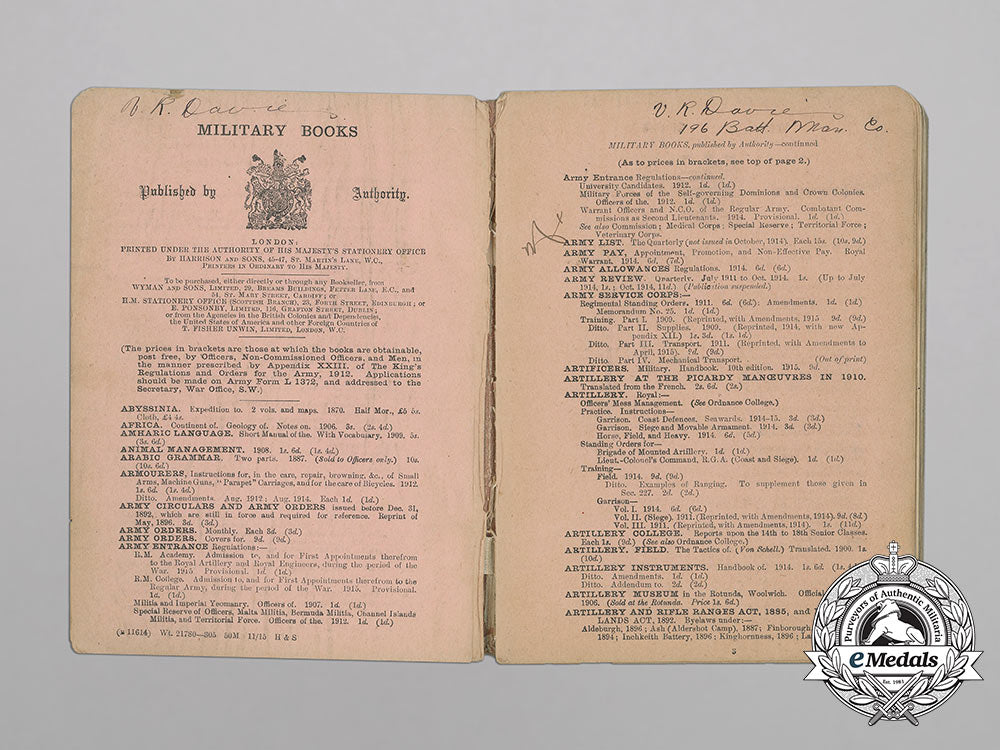 V. R. Davie
MILITARY BOOKS
Published by Authority.
LONDON:
PRINTED UNDER THE AUTHORITY OF HIS MAJESTY'S STATIONERY OFFICE
By HARRISON AND SONS, 45-47, ST. MARTIN'S LANE, W.C.,
PRINTERS IN ORDINARY TO HIS MAJESTY.
To be purchased, either directly or through any Bookseller, from
WYMAN AND SONS, LIMITED, 29, BREAMS BUILDINGS, FETTER LANE, E.C., and
54, ST. MARY STREET, CARDIFF; or
H.M. STATIONERY OFFICE (SCOTTISH BRANCH), 23, FORTH STREET, EDINBURGH; or
E. PONSONBY, LIMITED, 116, GRAFTON STREET, DUBLIN;
or from the Agencies in the British Colonies and Dependencies,
the United States of America and other Foreign Countries of
T. FISHER UNWIN, LIMITED, LONDON, W.C.
(The prices in brackets are those at which the books are obtainable,
post free, by Officers, Non-Commissioned Officers, and Men, in
the manner prescribed by Appendix XXIII. of The King's
Regulations and Orders for the Army, 1912. Applications
should be made on Army Form L 1372, and addressed to the
Secretary, War Office, S.W.)
ABYSSINIA. Expedition to. 2 vols. and maps. 1870. Half Mor., £5 5s.
Cloth, £4 4s.
AFRICA. Continent of. Geology of. Notes on. 1906. 3s. (2s. 4d.)
AMHARIC LANGUAGE. Short Manual of the. With Vocabulary, 1909. 5s.
(3s. 6d.)
ANIMAL MANAGEMENT. 1908. 1s. 6d. (1s. 4d.)
ARABIC GRAMMAR. Two parts. 1887. (Sold to Officers only.) 10s.
(10s. 6d.)
ARMOURERS, Instructions for, in the care, repair, browning, &c., of Small
Arms, Machine Guns, "Parapet" Carriages, and for the care of Bicycles. 1912.
1s. 6d. (1s. 4d.)
Ditto. Amendments. Aug. 1912; Aug. 1914. Each 1d. (1d.)
ARMY CIRCULARS AND ARMY ORDERS issued before Dec. 31,
1892, which are still in force and required for reference. Reprint of
May, 1896. 3d. (3d.)
ARMY ORDERS. Monthly. Each 3d. (3d.)
ARMY ORDERS. Covers for. 9d. (9d.)
ARMY ENTRANCE Regulations:—
R.M. Academy. Admission to, and for First Appointments therefrom
to the Royal Artillery and Royal Engineers, during the period of the
War. 1915 Provisional. 1d. (1d.)
R.M. College. Admission to, and for First Appointments therefrom to the
Regular Army, during the period of the War. 1915. Provisional.
1d. (1d.)
Militia and Imperial Yeomanry. Officers of. 1907. 1d. (1d.)
Special Reserve of Officers, Malta Militia, Bermuda Militia, Channel Islands
Militia, and Territorial Force. Officers of the. 1912. 1d. (1d.)
(B 11614) Wt. 21780—805 50M 11/15 H & S
V. R. Davie
196 Batt. Man. Co.
MILITARY BOOKS, published by Authority—continued
(As to prices in brackets, see top of page 2.)
Army Entrance Regulations—continued.
University Candidates. 1912. 1d. (1d.)
Military Forces of the Self-governing Dominions and Crown Colonies.
Officers of the. 1912. 1d. (1d.)
Warrant Officers and N.C.O. of the Regular Army. Combatant Com-
missions as Second Lieutenants. 1914. Provisional. 1d. (1d.)
See also Commission; Medical Corps; Special Reserve; Territorial Force;
Veterinary Corps.
ARMY LIST. The Quarterly (not issued in October, 1914). Each 15s. (10s. 9d.)
ARMY PAY, Appointment, Promotion, and Non-Effective Pay. Royal
Warrant. 1914. 6d. (7d.)
ARMY ALLOWANCES Regulations. 1914. 6d. (6d.)
ARMY REVIEW. Quarterly. July 1911 to Oct. 1914. 1s. (Up to July
1914, 1s.; Oct. 1914, 11d.) (Publication suspended.)
ARMY SERVICE CORPS:—
Regimental Standing Orders. 1911. 6d. (6d.); Amendments. 1d. (1d.)
Memorandum No. 25. 1d. (1d.)
Training. Part I. 1909. (Reprinted, with Amendments, 1915 9d. (9d.)
Ditto. Part II. Supplies. 1909. (Reprinted, 1914, with new Ap-
pendix XII.) 1s. 3d. (1s. 1d.)
Ditto. Part III. Transport. 1911. (Reprinted, with Amendments to
April, 1915). 9d. (9d.)
Ditto. Part IV. Mechanical Transport. (Out of print)
ARTIFICERS. Military. Handbook. 10th edition. 1915. 9d.
ARTILLERY AT THE PICARDY MANŒUVRES IN 1910.
Translated from the French. 2s. 6d. (2s.)
ARTILLERY. Royal:—
Officers' Mess Management. (See Ordnance College.)
Practice. Instructions—
Garrison. Coast Defences. Seawards. 1914-15. 3d. (3d.)
Garrison. Siege and Movable Armament. 1914. 3d. (3d.)
Horse, Field, and Heavy. 1914. 6d. (5d.)
Standing Orders for—
Brigade of Mounted Artillery. 1d. (1d.)
Lieut.-Colonel's Command, R.G.A. (Coast and Siege). 1d. (1d.)
Training—
Field. 1914. 9d. (9d.)
Ditto. Examples of Ranging. To supplement those given in
Sec. 227. 2d. (2d.)
Garrison—
Vol. I. 1914. 6d. (6d.)
Vol. II. (Siege). 1911. (Reprinted, with Amendments, 1914). 9d. (8d.)
Vol. III. 1911. (Reprinted, with Amendments, 1914). 1s. (11d.)
ARTILLERY COLLEGE. Reports upon the 14th to 18th Senior Classes.
Each 1s. (9d.) (See also Ordnance College.)
ARTILLERY. FIELD. The Tactics of. (Von Schell.) Translated. 1900. 1s.
(10d.)
ARTILLERY INSTRUMENTS. Handbook of. 1914. 1s. 6d. (1s.
Ditto. Amendments. 1d. (1d.)
Ditto. Addendum to. 2d. (2d.)
ARTILLERY MUSEUM in the Rotunda, Woolwich. Offici
1906. (Sold at the Rotunda. Price 1s. 6d.)
ARTILLERY AND RIFLE RANGES ACT, 1885, and
LANDS ACT, 1892. Byelaws under:—
Aldeburgh, 1896; Ash (Aldershot Camp), 1887; Finborough,
1894; Inchkeith Battery, 1896; Kinghornness, 1896;
3
Purveyors of Authentic Militaria
eMedals
Est. 1981